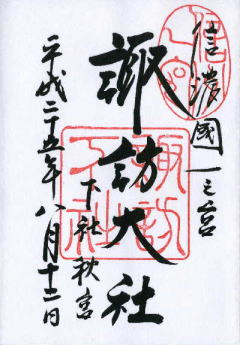 信濃國一之宮
諏訪大社
下社秋宮
平成二十五年八月十二日